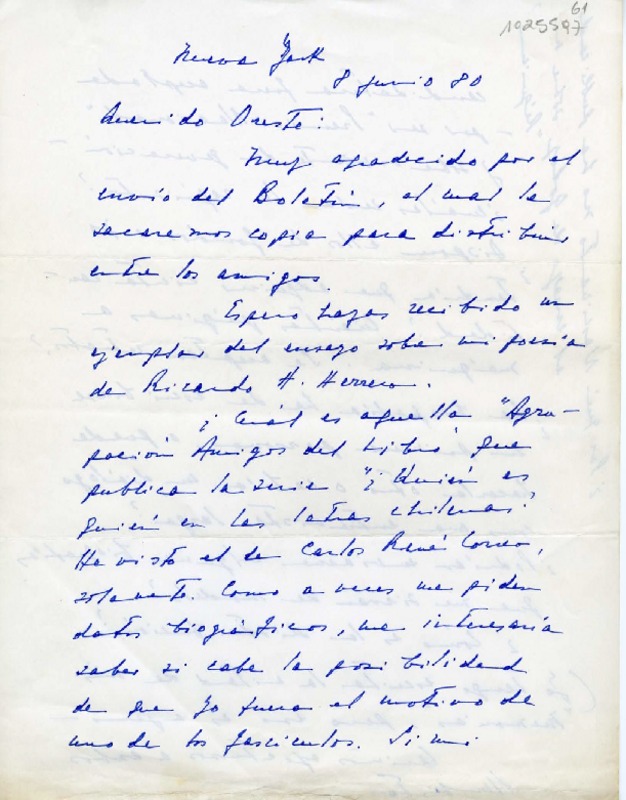 61
1025597
Nueva York
8 junio 80
Querido Oreste:
Muy agradecido por el
envío del Boletín, al cual le
sacaremos copia para distribuir
entre los amigos.
Espero hayas recibido un
ejemplar del ensayo sobre mi poesía
de Ricardo H. Herrera.
¿Cuál es aquella "Agru-
pación Amigos del Libro" que
publica la serie "¿Quién es
quién en las letras chilenas?
He visto el de Carlos René Correa,
solamente. Como a veces me piden
datos biográficos, me interesaría
saber si cabe la posibilidad
de que yo fuera el motivo de
uno de los fascículos. Si mi